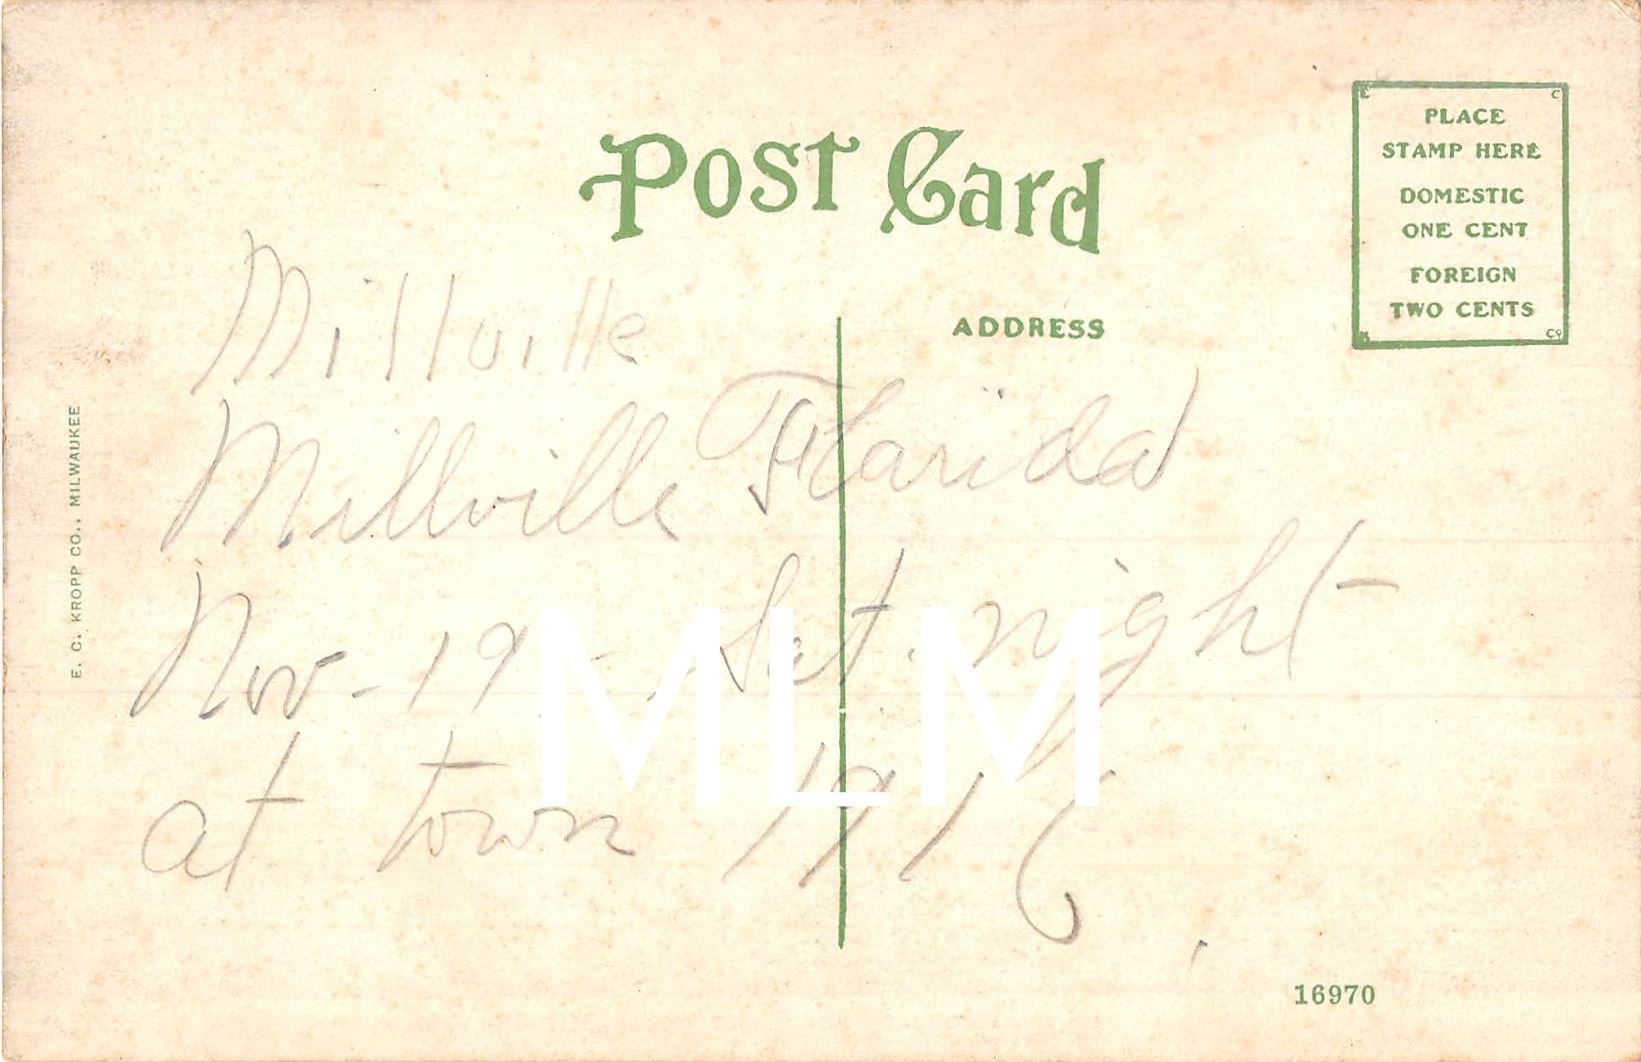 Post Card
PLACE
STAMP HERE
DOMESTIC
ONE CENT
FOREIGN
TWO CENTS
E C
K Co
ADDRESS
E. C. KROPP CO., MILWAUKEE
Millville
Millville Florida
Nov-19- Sat. night
at town 1916
MLM
16970